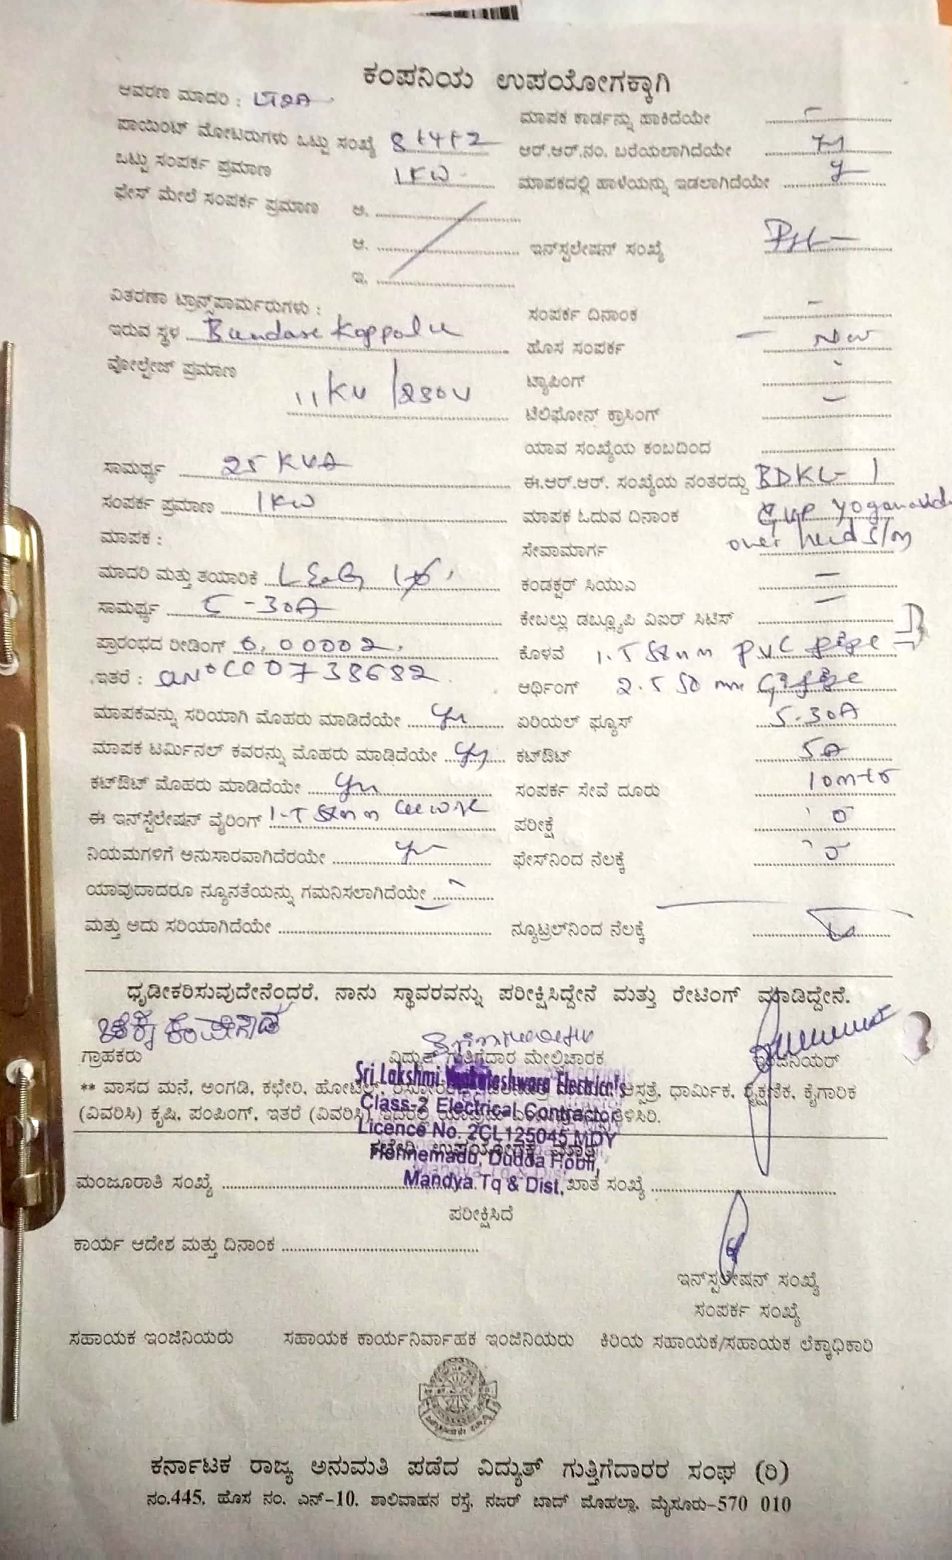 ಕಂಪನಿಯ ಉಪಯೋಗಕ್ಕಾಗಿ
ಆವರಣ ಮಾದರಿ : LT2A
ಮಾಪಕ ಕಾರ್ಡನ್ನು ಹಾಕಿದೆಯೇ
ಪಾಯಿಂಟ್ ಮೋಟರುಗಳು ಒಟ್ಟು ಸಂಖ್ಯೆ 8+4+2
ಆರ್.ಆರ್.ನಂ. ಬರೆಯಲಾಗಿದೆಯೇ
ಒಟ್ಟು ಸಂಪರ್ಕ ಪ್ರಮಾಣ 1KW
ಮಾಪಕದಲ್ಲಿ ಹಾಳೆಯನ್ನು ಇಡಲಾಗಿದೆಯೇ y
ಫೇಸ್ ಮೇಲೆ ಸಂಪರ್ಕ ಪ್ರಮಾಣ ಅ.
ಆ.
ಇನ್‌ಸ್ಟಲೇಷನ್ ಸಂಖ್ಯೆ
ಇ.
ವಿತರಣಾ ಟ್ರಾನ್ಸ್‌ಪಾರ್ಮರುಗಳು :
ಸಂಪರ್ಕ ದಿನಾಂಕ -
ಇರುವ ಸ್ಥಳ Bandare Koppalu
ಹೊಸ ಸಂಪರ್ಕ - New
ವೋಲ್ಟೇಜ್ ಪ್ರಮಾಣ 11KV/250V
ಟ್ಯಾಪಿಂಗ್
ಟೆಲಿಫೋನ್ ಕ್ರಾಸಿಂಗ್ -
ಯಾವ ಸಂಖ್ಯೆಯ ಕಂಬದಿಂದ
ಸಾಮರ್ಥ್ಯ 25 KVA
ಈ.ಆರ್.ಆರ್. ಸಂಖ್ಯೆಯ ನಂತರದ್ದು BDKL-1
ಸಂಪರ್ಕ ಪ್ರಮಾಣ 1KW
ಮಾಪಕ ಓದುವ ದಿನಾಂಕ
ಮಾಪಕ :
ಸೇವಾಮಾರ್ಗ over head
ಮಾದರಿ ಮತ್ತು ತಯಾರಿಕೆ L&G
ಕಂಡಕ್ಟರ್ ಸಿಯುಎ -
ಸಾಮರ್ಥ್ಯ 5-30A
ಕೇಬಲ್ಲು ಡಬ್ಲ್ಯೂಪಿ ವಿಐರ್ ಸಿಟಿಸ್ -
ಪ್ರಾರಂಭದ ರೀಡಿಂಗ್ 0,00002
ಕೊಳವೆ PVC pipe
ಇತರೆ : C00738682
ಆರ್ಥಿಂಗ್
ಮಾಪಕವನ್ನು ಸರಿಯಾಗಿ ಮೊಹರು ಮಾಡಿದೆಯೇ yes
ಏರಿಯಲ್ ಫ್ಯೂಸ್ 5-30A
ಮಾಪಕ ಟರ್ಮಿನಲ್ ಕವರನ್ನು ಮೊಹರು ಮಾಡಿದೆಯೇ yes
ಕಟ್‌ಔಟ್ 5A
ಕಟ್‌ಔಟ್ ಮೊಹರು ಮಾಡಿದೆಯೇ yes
ಸಂಪರ್ಕ ಸೇವೆ ದೂರು
ಈ ಇನ್‌ಸ್ಟೆಲೇಷನ್ ವೈರಿಂಗ್
ಪರೀಕ್ಷೆ
ನಿಯಮಗಳಿಗೆ ಅನುಸಾರವಾಗಿದೆರೆಯೇ yes
ಫೇಸ್‌ನಿಂದ ನೆಲಕ್ಕೆ
ಯಾವುದಾದರೂ ನ್ಯೂನತೆಯನ್ನು ಗಮನಿಸಲಾಗಿದೆಯೇ
ಮತ್ತು ಅದು ಸರಿಯಾಗಿದೆಯೇ
ನ್ಯೂಟ್ರಲ್‌ನಿಂದ ನೆಲಕ್ಕೆ
ಧೃಡೀಕರಿಸುವುದೇನೆಂದರೆ, ನಾನು ಸ್ಥಾವರವನ್ನು ಪರೀಕ್ಷಿಸಿದ್ದೇನೆ ಮತ್ತು ರೇಟಿಂಗ್ ಮಾಡಿದ್ದೇನೆ.
ಗ್ರಾಹಕರು ವಿದ್ಯುತ್ ಗುತ್ತಿಗೆದಾರ ಮೇಲ್ವಿಚಾರಕ ಇಂಜಿನಿಯರ್
Sri Lakshmi Venkateshwara Electrical
** ವಾಸದ ಮನೆ, ಅಂಗಡಿ, ಕಛೇರಿ, ಹೋಟೆಲ್, ಆಸ್ಪತ್ರೆ, ಧಾರ್ಮಿಕ, ಶೈಕ್ಷಣಿಕ, ಕೈಗಾರಿಕೆ
Class-2 Electrical Contractor
(ವಿವರಿಸಿ) ಕೃಷಿ, ಪಂಪಿಂಗ್, ಇತರೆ (ವಿವರಿಸಿ)
Licence No. 2CL125045 MDY
ಕಛೇರಿ ಉಪಯೋಗಕ್ಕೆ ಮಾತ್ರ
Honnemadu, Dudda Hobli,
Mandya.Tq & Dist,
ಮಂಜೂರಾತಿ ಸಂಖ್ಯೆ ಖಾತೆ ಸಂಖ್ಯೆ
ಪರೀಕ್ಷಿಸಿದೆ
ಕಾರ್ಯ ಆದೇಶ ಮತ್ತು ದಿನಾಂಕ
ಇನ್‌ಸ್ಪಲೇಷನ್ ಸಂಖ್ಯೆ
ಸಂಪರ್ಕ ಸಂಖ್ಯೆ
ಸಹಾಯಕ ಇಂಜಿನಿಯರು ಸಹಾಯಕ ಕಾರ್ಯನಿರ್ವಾಹಕ ಇಂಜಿನಿಯರು ಕಿರಿಯ ಸಹಾಯಕ/ಸಹಾಯಕ ಲೆಕ್ಕಾಧಿಕಾರಿ
ಕರ್ನಾಟಕ ರಾಜ್ಯ ಅನುಮತಿ ಪಡೆದ ವಿದ್ಯುತ್ ಗುತ್ತಿಗೆದಾರರ ಸಂಘ (ರಿ)
ನಂ.445, ಹೊಸ ನಂ. ಎನ್-10, ಶಾಲಿವಾಹನ ರಸ್ತೆ, ನಜರ್ ಬಾದ್ ಮೊಹಲ್ಲಾ, ಮೈಸೂರು-570 010